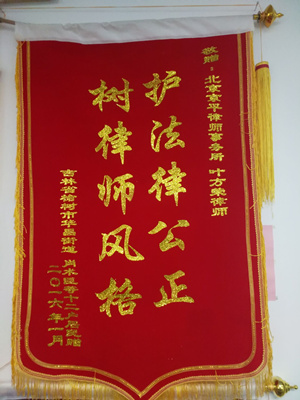 敬赠：北京京平律师事务所 叶方荣律师
护法律公正
树律师风格
吉林省榆树市华昌街道
肖木匠等十二户居民赠
二〇一六年一月